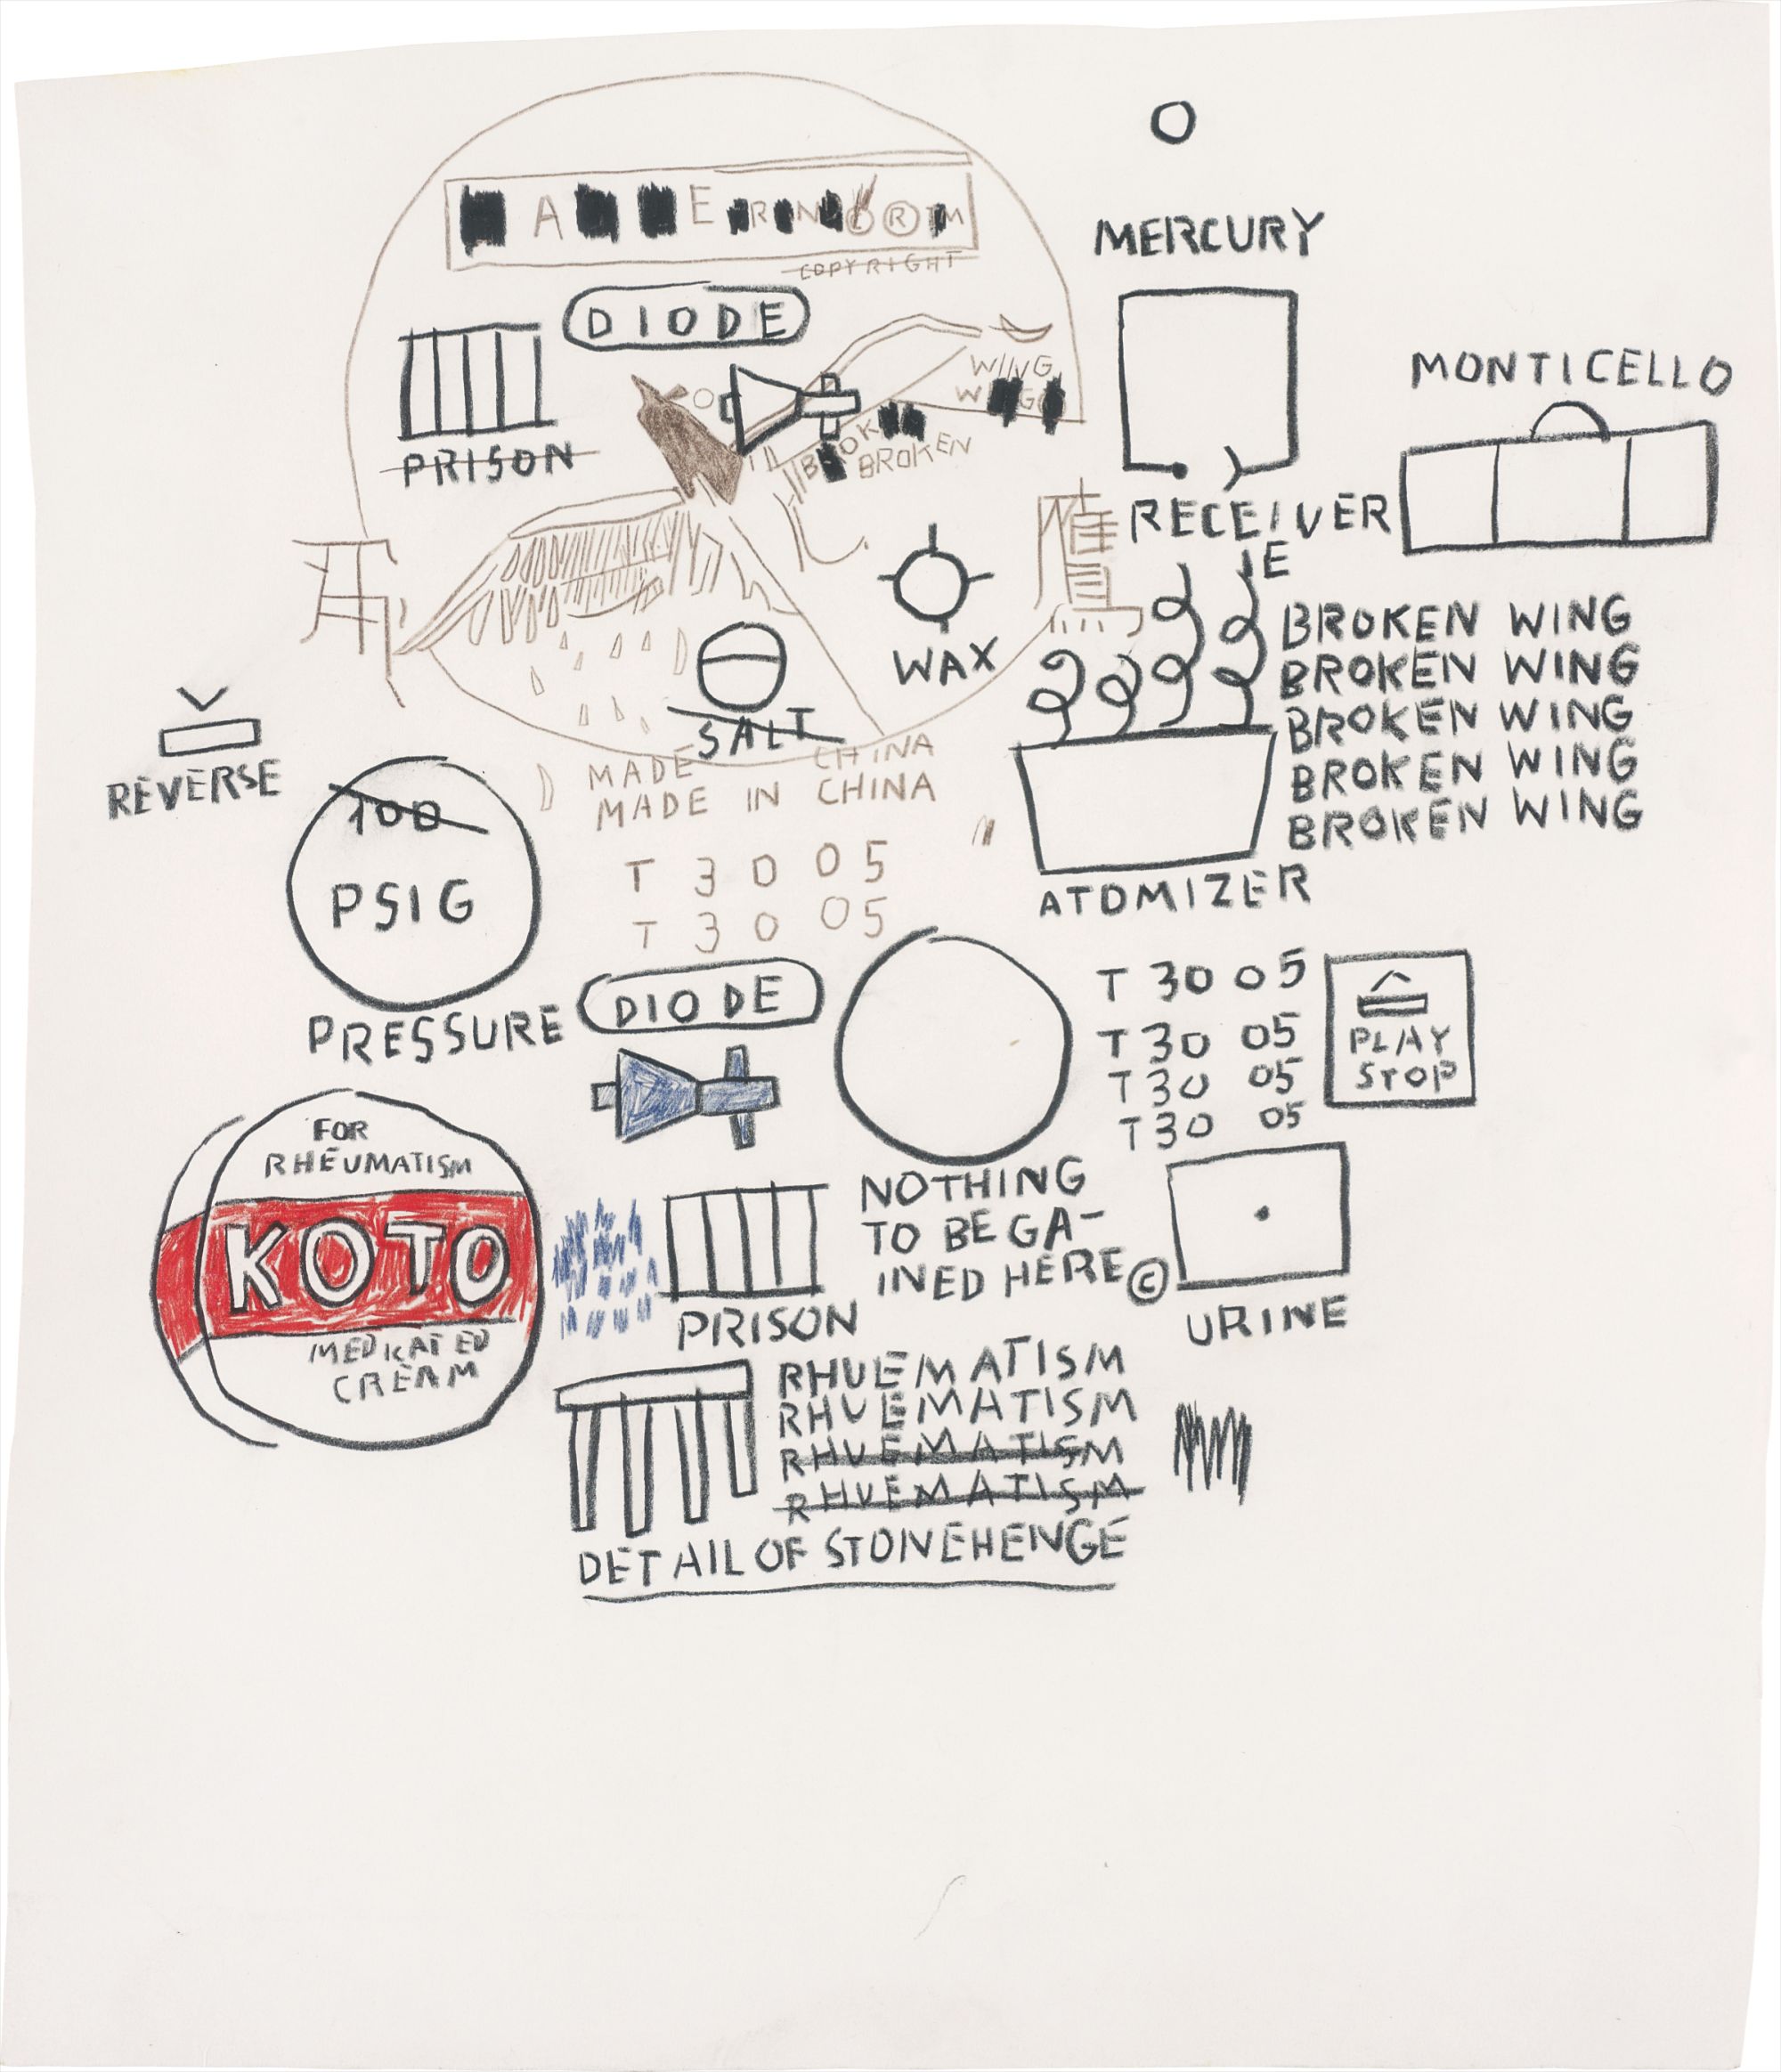 A E R N ® TM
COPYRIGHT
DIODE
PRISON
WING
BROKEN
MERCURY
MONTICELLO
RECEIVER
E
WAX
SALT
BROKEN WING
BROKEN WING
BROKEN WING
BROKEN WING
BROKEN WING
ATOMIZER
REVERSE
MADE CHINA
MADE IN CHINA
T 3 0 0 5
T 3 0 0 5
100
PSIG
PRESSURE
DIODE
T 30 05
T 30 05
T 30 05
T 30 05
PLAY
STOP
FOR
RHEUMATISM
KOTO
MEDICATED
CREAM
PRISON
NOTHING
TO BE GA-
INED HERE ©
URINE
RHUEMATISM
RHUEMATISM
RHUEMATISM
RHUEMATISM
DETAIL OF STONEHENGE